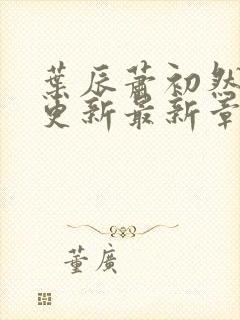 葉辰蕭初然
更新最新章
董廣